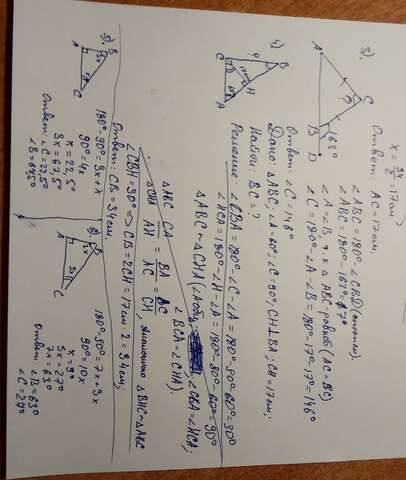 x = 34/2 = 17см.
Ответ: AC = 17см.
3)
A
C
?
B
163°
D
∠ABC = 180° - ∠CBD (смежн).
∠ABC = 180° - 163° = 17°
∠A = ∠B т.к △ABC - равноб (AC = BC)
∠C = 180° - ∠A - ∠B = 180° - 17° - 17° = 146°
Ответ: ∠C = 146°
4)
C
?
B
H
A
Дано: △ABC, ∠A = 60°; ∠C = 90°, CH⊥BA; CH = 17см;
Найти: BC - ?
Решение
∠CBA = 180° - ∠C - ∠A = 180° - 90° - 60° = 30°
∠HCA = 180° - ∠H - ∠A =
△ABC ~ △CHA (∠A общ.; ∠CBA = ∠HCA;
∠BCA = ∠CHA).
△ABC CA BA BC
△CHA AH AC CH
Аналогично △BHC ~ △ABC
∠CBH = 30° => CB = 2CH = 17см · 2 = 34см;
Ответ: CB = 34см.
5)
B
3x
C
180° - 90° = 3x + x
90° = 4x
x = 22,5°
3x = 67,5°
Ответ: ∠C = 22,5°
∠B = 67,5°
6)
B
7x
A
3x
C
180° - 90° = 7x + 3x
90° = 10x
x = 9°
3x = 27°
7x = 63°
Ответ: ∠B = 63°
∠C = 27°